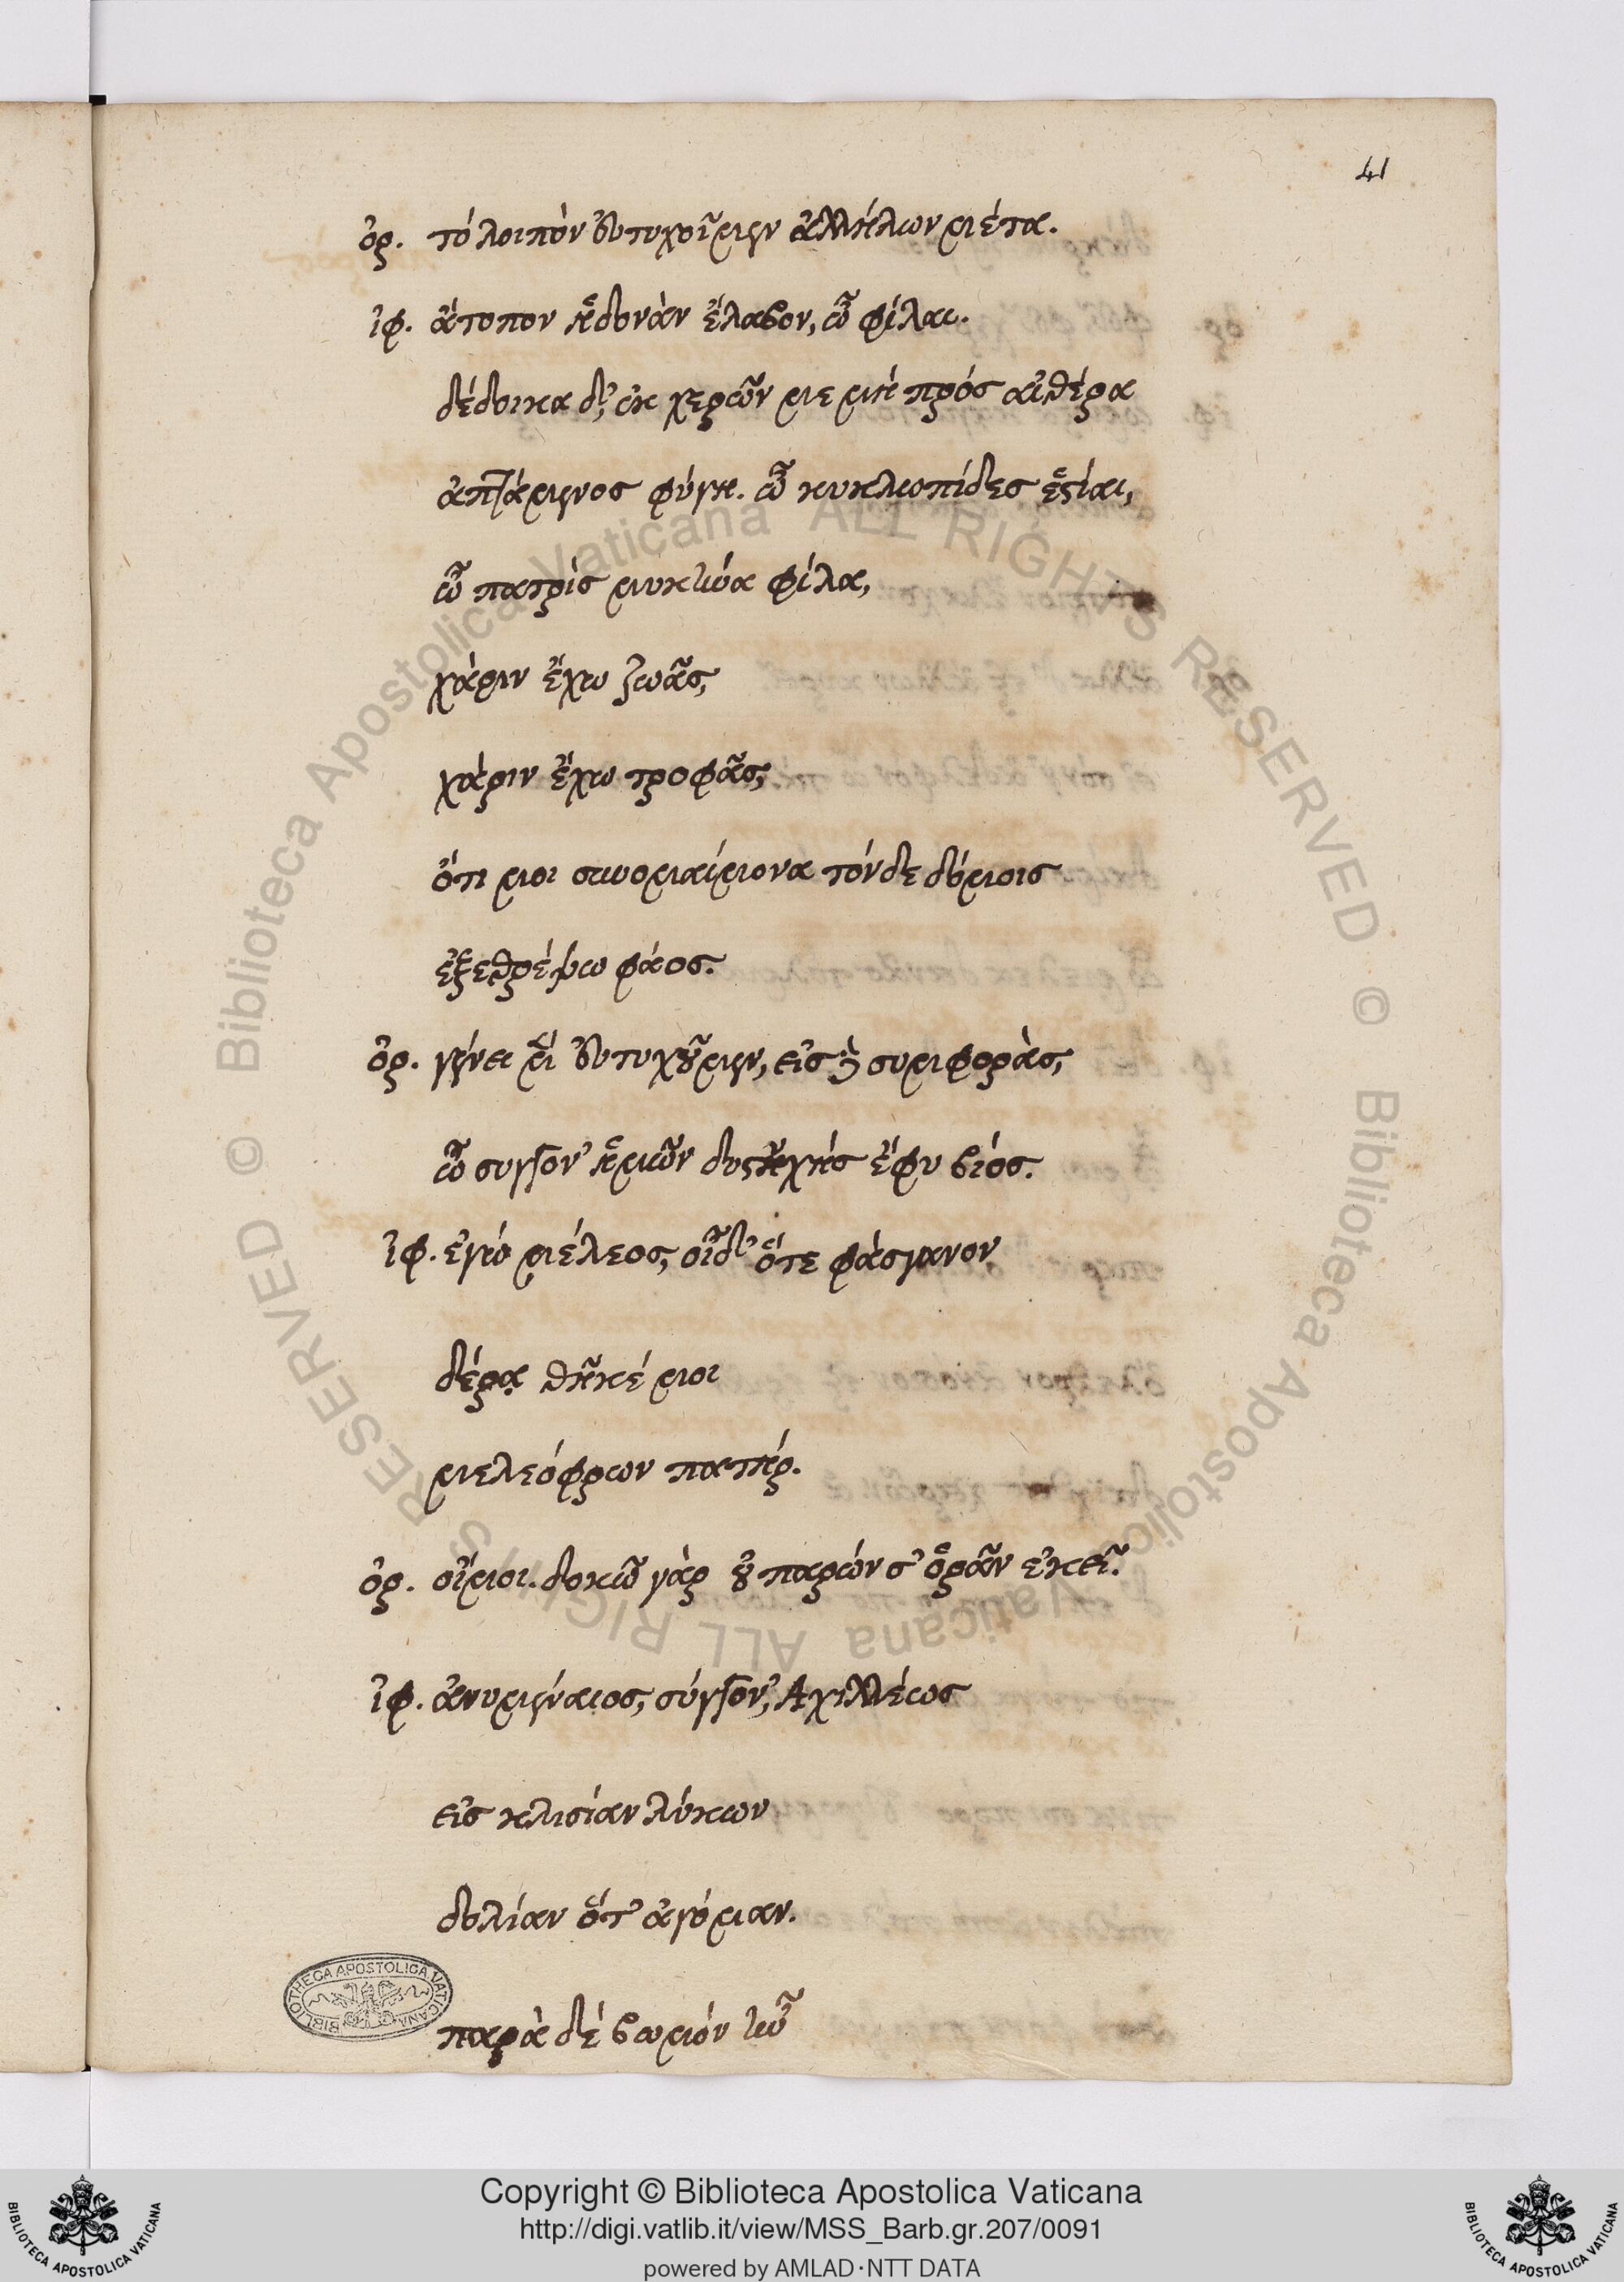 41
ὀρ. τὸ λοιπὸν εὐτυχοῖμεν ἀλλήλων μέτα.
ἰφ. ἄτοπον ἡδονὰν ἔλαβον, ὦ φίλαι.
δέδοικα δ', ἐκ χερῶν με μὴ πρὸς αἰθέρα
ἀμπτάμενος φύγῃ. ὦ κυκλωπίδες ἑστίαι,
ὦ πατρὶς μυκήνα φίλα,
χάριν ἔχω ζωᾶς,
χάριν ἔχω τροφᾶς,
ὅτι μοι συνομαίμονα τόνδε δόμοις
ἐξεθρέψω φάος.
ὀρ. γένει μὲν εὐτυχοῦμεν, εἰς δὲ συμφορὰς,
ὦ σύγγον' ἡμῶν δυστυχὴς ἔφυ βίος.
ἰφ. ἐγὼ μέλεος, οἶδ' ὅτε φάσγανον
δέρᾳ θῆκέ μοι
μελεόφρων πατήρ.
ὀρ. οἴμοι. δοκῶ γὰρ οὐ παρών σ' ὁρᾶν ἐκεῖ.
ἰφ. ἀνυμέναιος, σύγγον', Ἀχιλλέως
εἰς κλισίαν λέκτρων
δολίαν ὅτ' ἀγόμαν.
παρὰ δὲ βωμὸν ἦν
BIBLIOTHECA APOSTOLICA VATICANA
© Biblioteca Apostolica Vaticana ALL RIGHTS RESERVED © Biblioteca Apostolica Vaticana ALL RIGHTS RESERVED
Copyright © Biblioteca Apostolica Vaticana
http://digi.vatlib.it/view/MSS_Barb.gr.207/0091
powered by AMLAD·NTT DATA
BIBLIOTECA APOSTOLICA VATICANA
BIBLIOTECA APOSTOLICA VATICANA